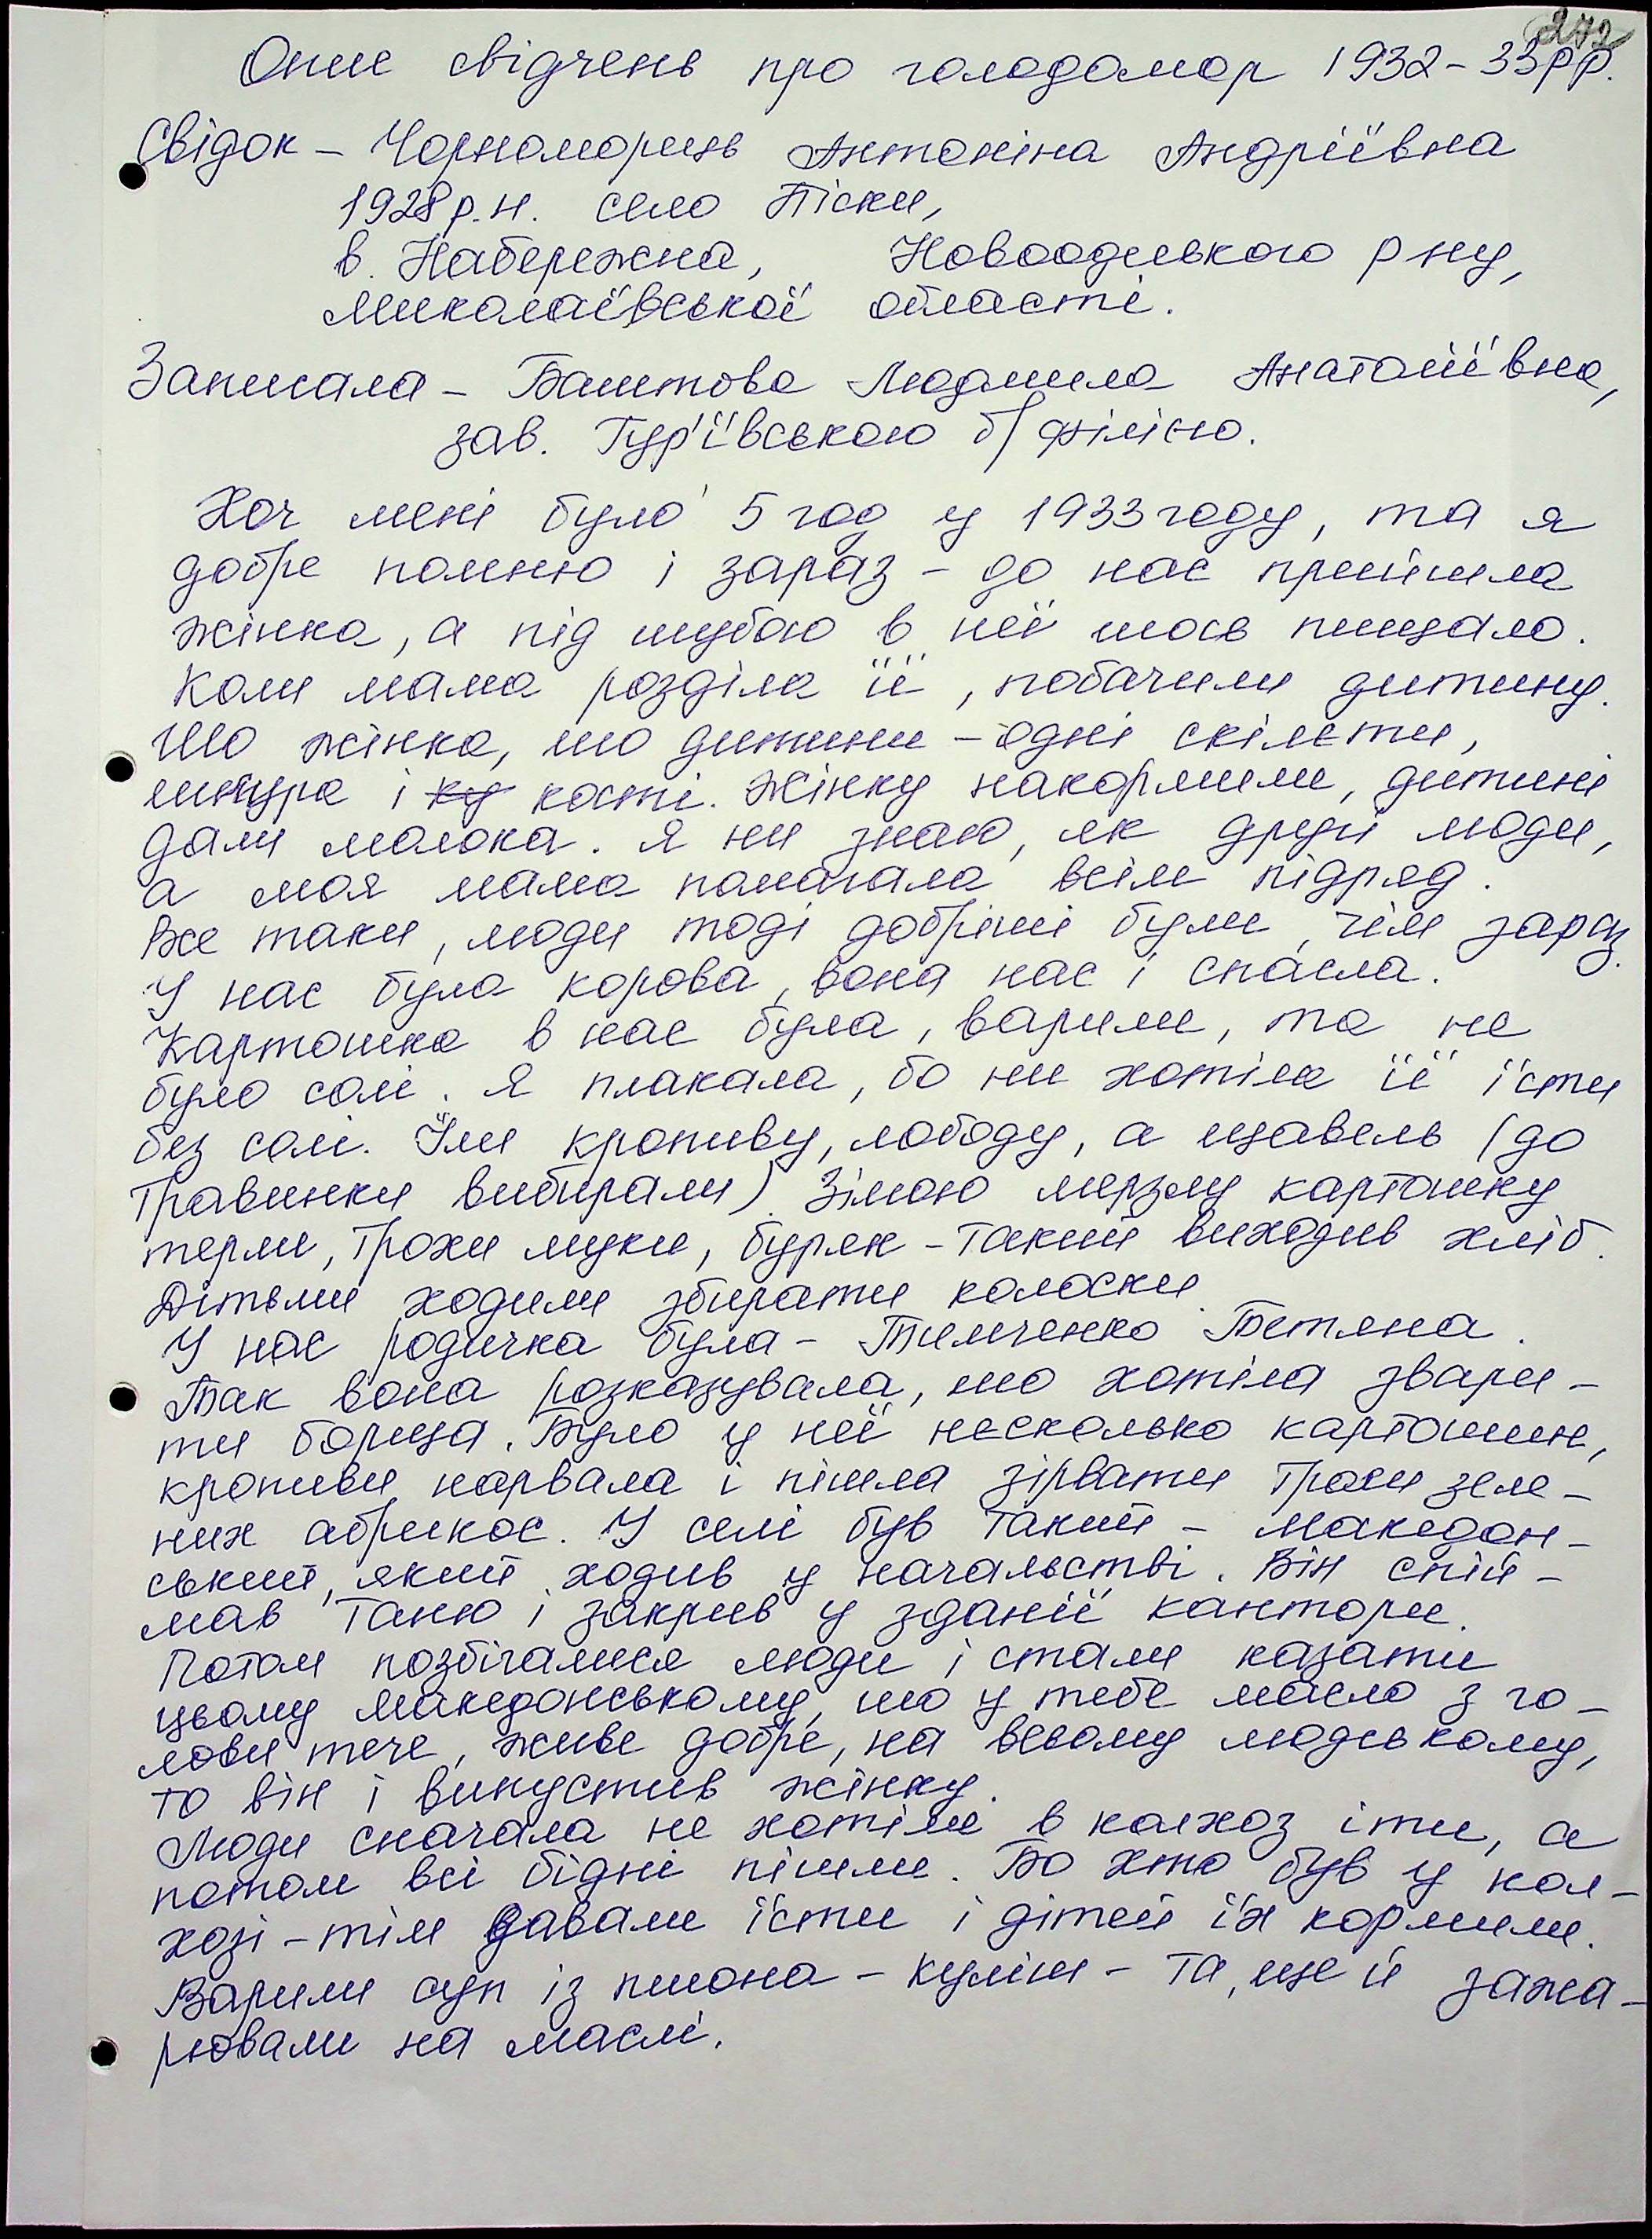 272
Опис свідчень про голодомор 1932-33рр.
Свідок - Чорноморець Антоніна Андріївна
1928 р.н. село Піски,
в. Набережна, Новоодеського р ну,
Миколаївської області.
Записала - Баштова Людмила Анатоліївна,
зав. Гур'ївською б/філією.
Хоч мені було 5 год у 1933 году, та я
добре помню і зараз - до нас прийшла
жінка, а під шубою в неї шось пищало.
Коли мама розділа її, побачили дитину.
Шо жінка, шо дитини - одні скілєти,
шкура і ку кості. Жінку накормили, дитині
дали молока. Я ни знаю, як другі люди,
а моя мама помагала всім підряд.
Все таки, люди тоді добріші були, чім зараз.
У нас була корова, вона нас і спасла.
Картошка в нас була, варили, та не
було солі. Я плакала, бо ни хотіла її їсти
без солі. Їли кропиву, лободу, а щавель (до
травинки вибирали). Зімою мерзлу картошку
терли, трохи муки, буряк - такий виходив хліб.
Дітьми ходили збирати колоски.
У нас родичка була - Тимченко Тетяна.
Так вона розказувала, шо хотіла звари-
ти борща. Було у неї нєсколько картошин,
кропиви нарвала і пішла зірвати трохи зеле-
них абрикос. У селі був такий - Македон-
ський, який ходив у начальстві. Він спій-
мав Таню і закрив у зданії кантори.
Потом позбігалися люди і стали казати
цьому Македонському, шо у тебе масло з го-
лови тече, живе добре, на всьому людському,
то він і випустив жінку.
Люди сначала не хотіли в колхоз іти, а
потом всі бідні пішли. Бо хто був у кол-
хозі - тім давали їсти і дітей їх кормили.
Варили суп із пшона - куліш - та, ще й зажа-
рювали на маслі.